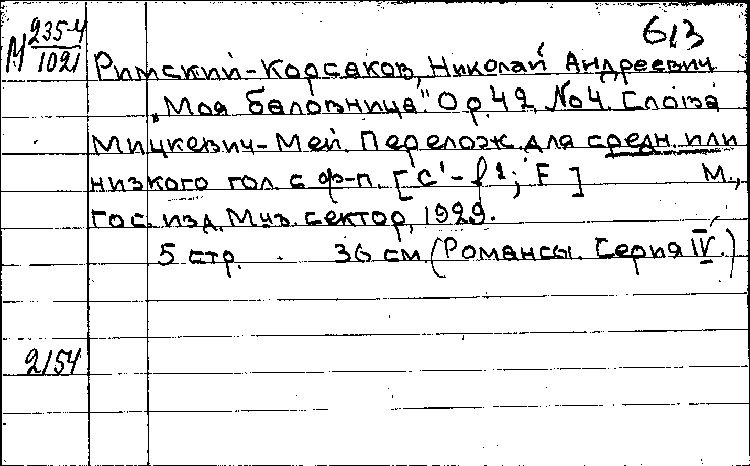 613
М 235-4
1021
Римский-Корсаков, Николай Андреевич
"Моя баловница." Op. 42, No 4. Слова
Мицкевич-Мей. Перелож. для средн. или
низкого гол. с ф-п. [c¹-f²; F] М.,
Гос. изд. Муз. сектор, 1929.
5 стр. 36 см. (Романсы. Серия IV.)
2154